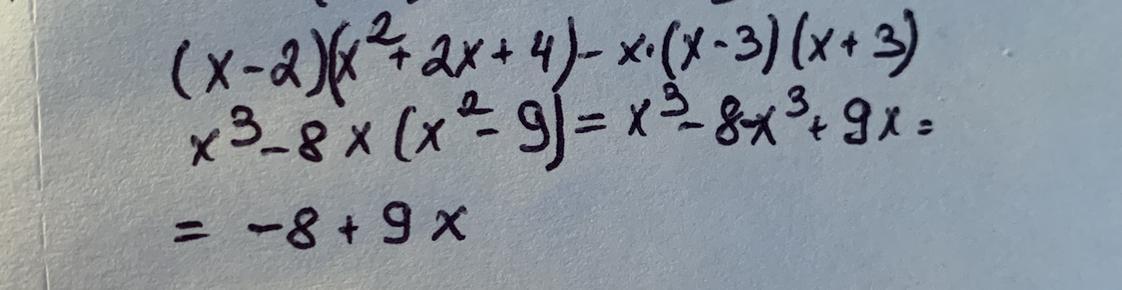 (x-2)(x²+2x+4)-x·(x-3)(x+3)
x³-8x(x²-9)=x³-8-x³+9x=
= -8+9x